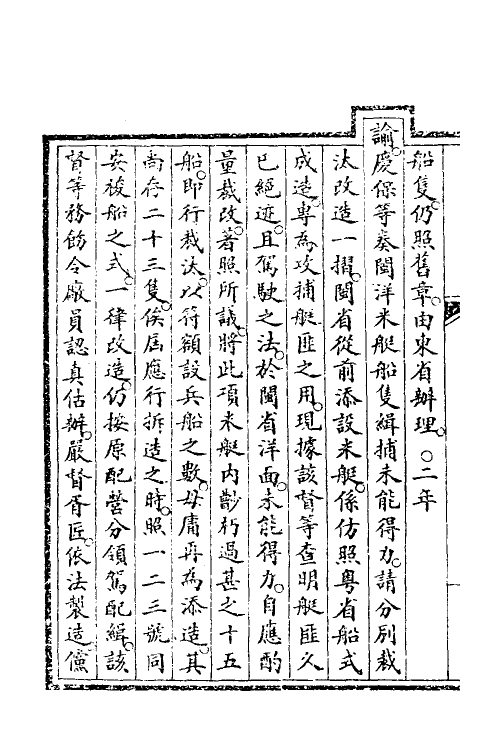 船隻。仍照舊章。由東省辦理。○二年
諭。慶保等奏閩洋米艇船隻緝捕未能得力。請分別裁
汰改造一摺。閩省從前添設米艇。係仿照粵省船式
成造。專為攻捕艇匪之用。現據該督等查明艇匪久
已絕迹。且駕駛之法。於閩省洋面。未能得力。自應酌
量裁改。著照所議。將此項米艇內齡朽過甚之十五
船。即行裁汰。以符額設兵船之數。毋庸再為添造。其
尚存二十三隻。俟屆應行拆造之時。照一二三號同
安梭船之式。一律改造。仍按原配營分領駕配緝。該
督等務飭令廠員認真估辦。嚴督胥匠。依法製造。儻